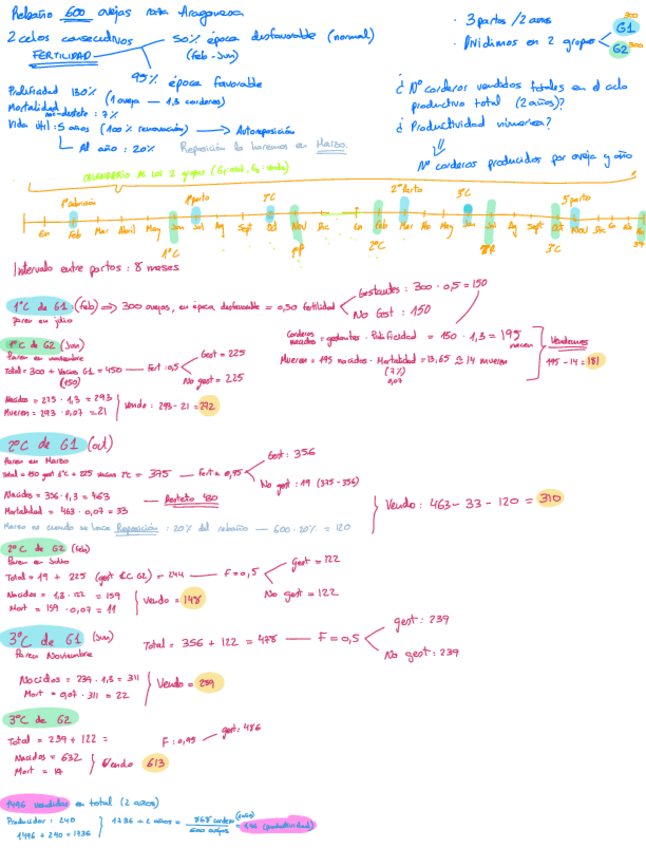 Rebaño 600 ovejas raza Aragonesa
2 celos consecutivos
50% época desfavorable (normal)
(feb - Jun)
FERTILIDAD
95% época favorable
Prolificidad 130%
(1 oveja — 1,3 corderos)
Mortalidad
destete: 7%
Vida útil: 5 años (100% renovación) → Autoreposición
Al año: 20%
Reposición la haremos en Marzo.
· 3 partos / 2 años
· Dividimos en 2 grupos
300
G1
G2
300
¿ Nº corderos vendidos totales en el ciclo
productivo total (2 años)?
¿ Productividad numérica?
Nº corderos producidos por oveja y año
1º parto
1ºC
2º Parto
3ºC
3 parto
En Feb Mar Abril May Jun Jul Ag Sept Oct Nov Dic En Feb Mar Ab May Jun Jul Ag Sept Oct Nov Dic
1ºC
2ºC
3ºC
Intervalo entre partos: 8 meses
1ºC de G1 (feb) ⇒ 300 ovejas, en época desfavorable = 0,50 fertilidad
Gestantes: 300 · 0,5 = 150
No Gest: 150
Paren en julio
1ºC de G2 (Jun)
Paren en noviembre
Total = 300 + Vacías G1 = 450 — Fert: 0,5
(150)
Gest = 225
No gest = 225
Corderos nacidos = gestantes · Prolificidad = 150 · 1,3 = 195
nacen
Mueren = 195 nacidos · Mortalidad = 13,65 ≅ 14 mueren
(7%)
0,07
Vendemos
195 - 14 = 181
Nacidos = 225 · 1,3 = 293
Mueren = 293 · 0,07 = 21
Vendo: 293 - 21 = 272
2ºC de G1 (oct)
Paren en Marzo
Total = 150 gest 1ºC + 225 vacías 1ºC = 375 — Fert = 0,95
Gest: 356
No gest: 19 (375 - 356)
Nacidos = 356 · 1,3 = 463 — Destete 430
Mortalidad = 463 · 0,07 = 33
Marzo es cuando se hace Reposición: 20% del rebaño — 600 · 20% = 120
Vendo: 463 - 33 - 120 = 310
2ºC de G2 (feb)
Paren en Julio
Total = 19 + 225 (gest 1C G2) = 244 — F = 0,5
Gest = 122
No gest = 122
Nacidos = 1,3 · 122 = 159
Mort = 159 · 0,07 = 11
Vendo = 148
3ºC de G1 (Jun)
Paren Noviembre
Total = 356 + 122 = 478 — F = 0,5
gest: 239
No gest: 239
Nacidos = 239 · 1,3 = 311
Mort = 0,07 · 311 = 22
Vendo = 289
3ºC de G2
Total = 239 + 122 =
F: 0,95
gest: 486
Nacidos = 632
Mort = 19
Vendo 613
1496 vendidos en total (2 años)
Producidos: 240
1496 + 240 = 1736
1736 ÷ 2 años = 868 corderos
600 ovejas
(productividad)